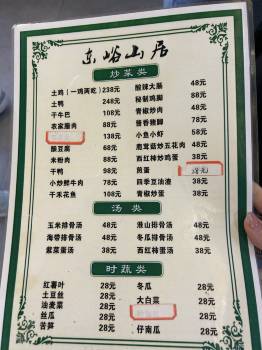 东峪山居
炒菜类
土鸡（一鸡两吃）238元
土鸭 248元
干牛巴 108元
农家腊肉 88元
138元
酿豆腐 38元
米粉肉 68元
干鸭 98元
小炒鲜牛肉 78元
干禾花鱼 108元
酸辣大肠 48元
秘制鸡脚 88元
青椒炒肉 48元
擂香猪脚 78元
小鱼小虾 58元
鹿茸菇炒五花肉 48元
西红柿炒鸡蛋 38元
煎蛋
四季豆油渣 38元
青椒炒蛋 38元
汤类
玉米排骨汤 48元
海带排骨汤 48元
紫菜蛋汤 38元
淮山排骨汤 48元
冬瓜排骨汤 48元
西红柿蛋汤 38元
时蔬类
红薯叶 28元
土豆丝 28元
油麦菜 28元
丝瓜 28元
苦笋 28元
冬瓜 28元
大白菜 28元
28元
仔南瓜 28元